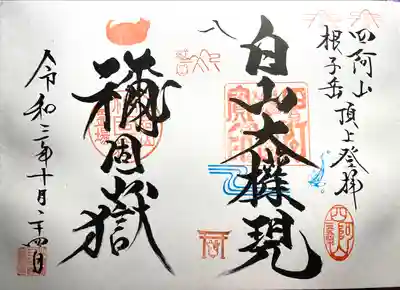 四阿山
根子岳 頂上登拝
八
白山大権現
禰固嶽
令和三年十月二十四日
四阿山